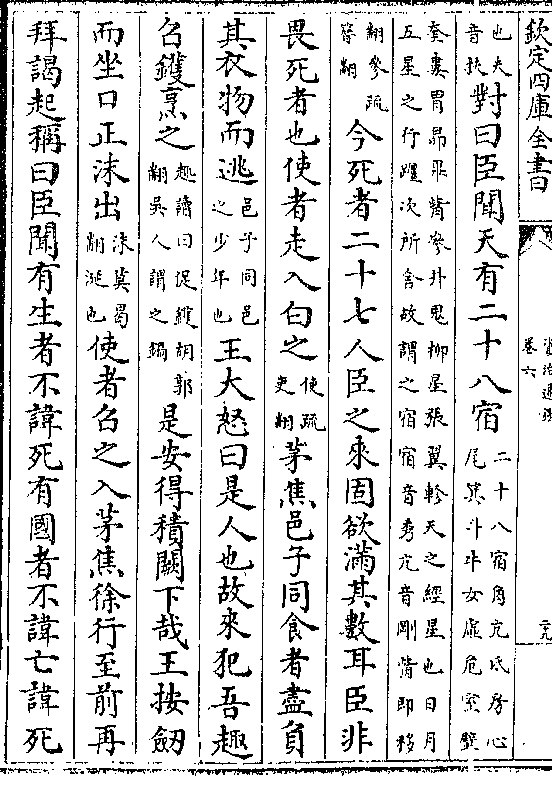 欽定四庫全書
資治通鑑
卷六
也夫
音扶
對曰臣聞天有二十八宿
二十八宿角亢氐房心
尾箕斗牛女虛危室壁
奎婁胃昴畢觜參井鬼柳星張翼軫天之經星也日月
五星之行躔次所舍故謂之宿宿音秀亢音剛觜即移
翻參疏
簪翻
今死者二十七人臣之來固欲滿其數耳臣非
畏死者也使者走入白之
使疏
吏翻
茅焦邑子同食者盡負
其衣物而逃
邑子同邑
之少年也
王大怒曰是人也故來犯吾趣
召鑊烹之
趣讀曰促鑊胡郭
翻吳人謂之鍋
是安得積闕下哉王按劔
而坐口正沫出
沫莫曷
翻涎也
使者召之入茅焦徐行至前再
拜謁起稱曰臣聞有生者不諱死有國者不諱亡諱死